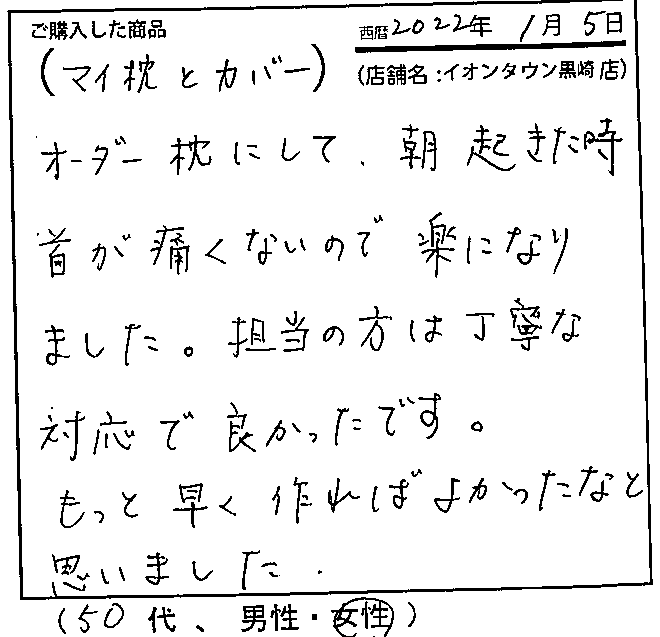 ご購入した商品 西暦2022年 1月 5日
(マイ枕とカバー) (店舗名:イオンタウン黒崎店)
オーダー枕にして、朝起きた時
首が痛くないので楽になり
ました。担当の方は丁寧な
対応で良かったです。
もっと早く作ればよかったなと
思いました.
(50代、男性・女性)